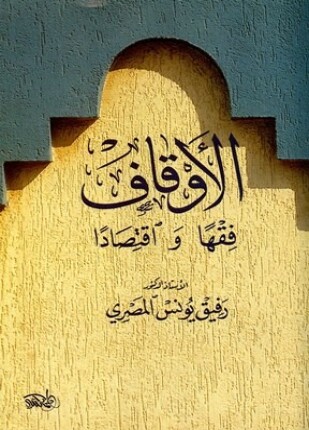 الأوقاف
فِقْهًا وَ اقْتِصَادًا
الأستاذ الدكتور
رفيق يُونسْ المصِري